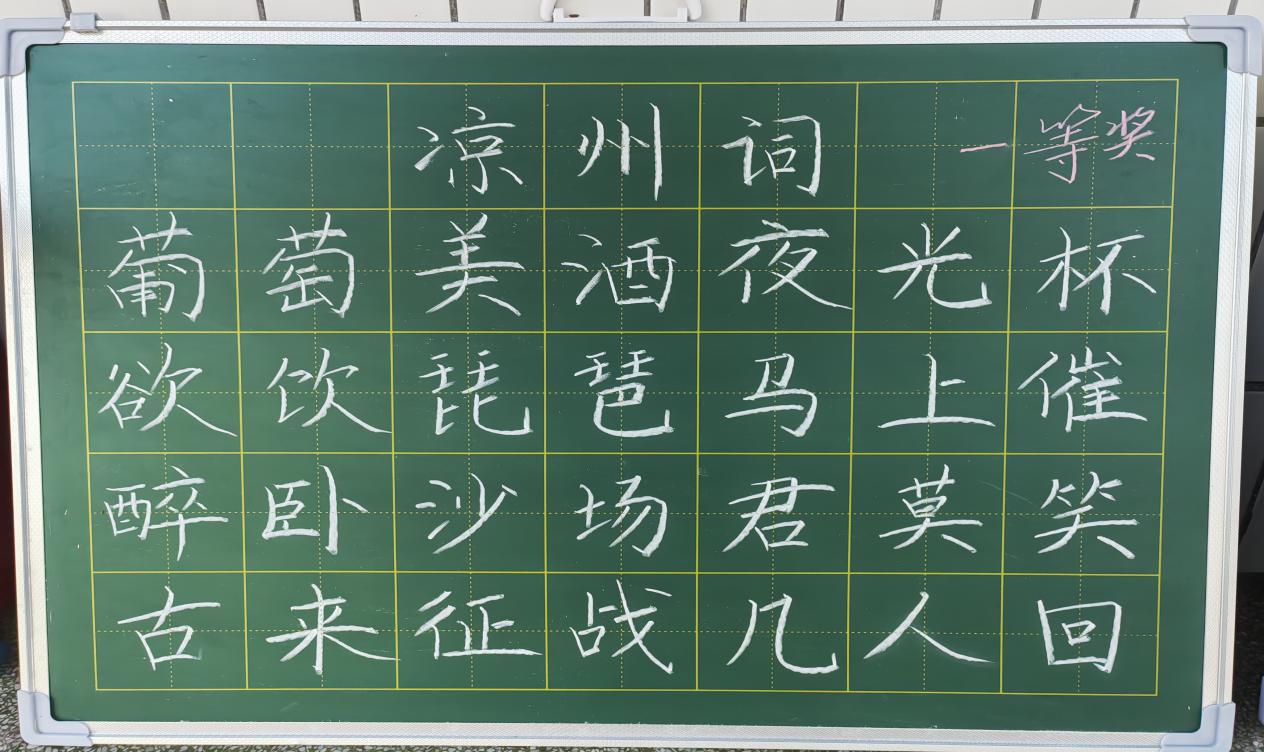 凉州词 一等奖
葡萄美酒夜光杯
欲饮琵琶马上催
醉卧沙场君莫笑
古来征战几人回